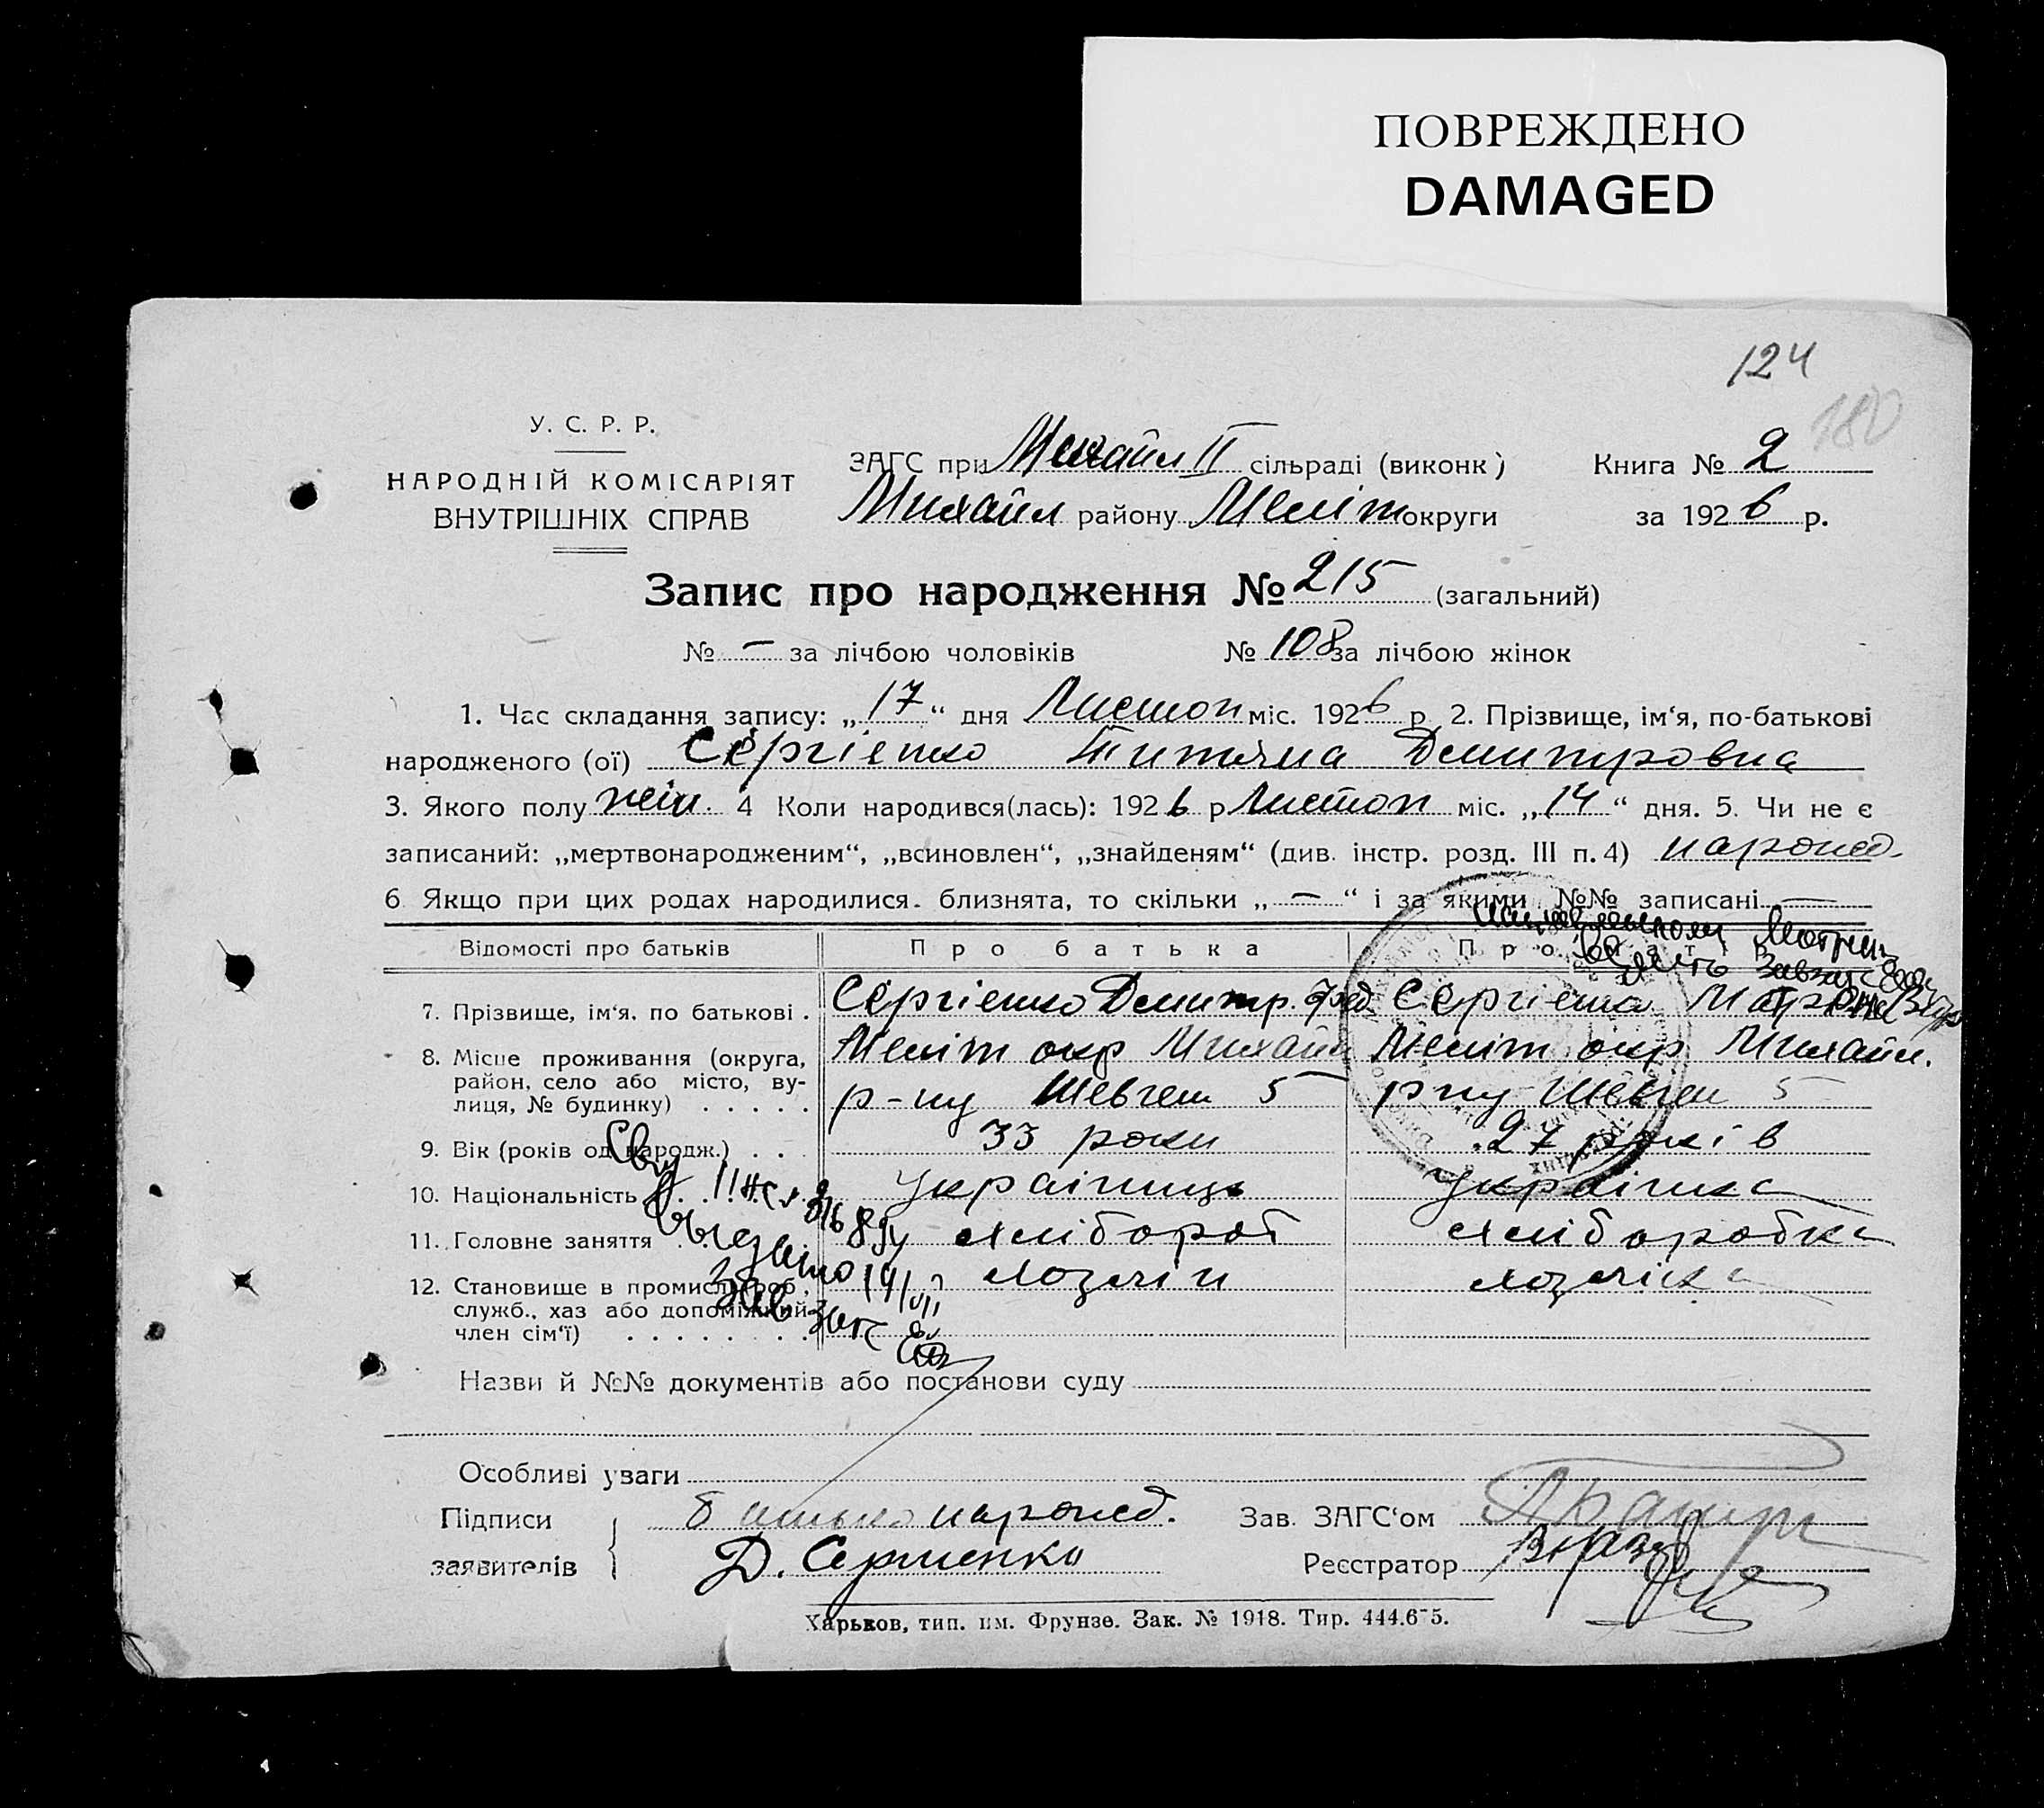 ПОВРЕЖДЕНО
DAMAGED
124
180
У. С. Р. Р.
НАРОДНІЙ КОМІСАРІЯТ
ВНУТРІШНІХ СПРАВ
ЗАГС при Михайл II сільраді (виконк)
Михайл району Меліт округи
Книга № 2
за 1926 р.
Запис про народження № 215 (загальний)
№ — за лічбою чоловіків № 108 за лічбою жінок
1. Час складання запису: „17“ дня Листоп міс. 1926 р 2. Прізвище, ім‘я, по-батькові
народженого (ої) Сергієнко Титяна Демитровна
3. Якого полу жін. 4 Коли народився(лась): 1926 р Листоп міс. „14“ дня. 5. Чи не є
записаний: „мертвонародженим“, „всиновлен“, „знайденям“ (див. інстр. розд. III п. 4) народж.
6 Якщо при цих родах народилися близнята, то скільки „—“ і за якими №№ записані —
Відомості про батьків Про батька Про мат
7. Прізвище, ім‘я, по батькові . Сергієнко Демитр. Фед. Сергієнко
8. Місце проживання (округа, район, село або місто, вулиця, № будинку) . . . . . Меліт окр Михайл Меліт окр Михайл.
р-ну Шевчен 5 р-ну Шевчен 5
9. Вік (років од народж.) . . . 33 роки 27 років
10. Національність українць українка
11. Головне заняття хлібороб хліборобка
12. Становище в промислі (роб, служб., хаз або допоміжний член сім‘ї) . . . . . . . . хозяін хозяіка
Свід.
выдано
Зав загс
Назви й №№ документів або постанови суду
Особливі уваги
Підписи заявителів
батько народж.
Д. Сергиенко
Зав. ЗАГС‘ом
Реєстратор
Харьков, тип. им. Фрунзе. Зак. № 1918. Тир. 444.675.